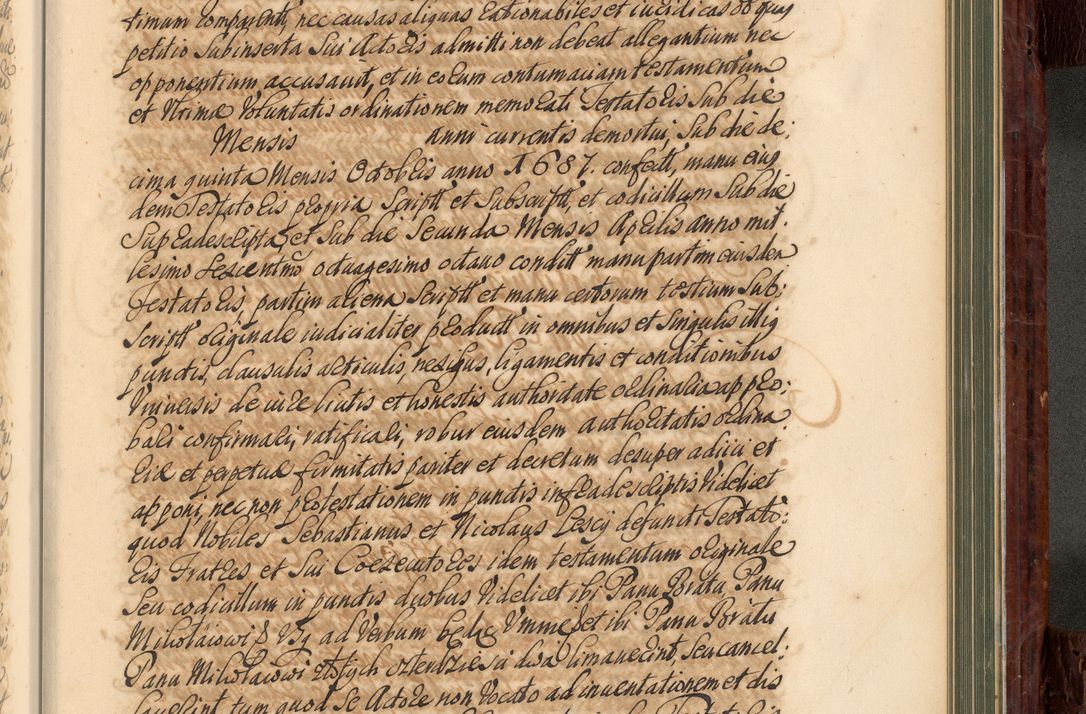 timum comparenti, nec causas aliquas rationabiles et iuridicas ob quas
petitio subinserta sui Actoris admitti non debeat allegantium nec
opponentium accusavit, et in eorum contumaciam testamentum
et Vltimæ Voluntatis ordinationem memorati Testatoris sub die
Mensis anni currentis demortui, sub die de:
cima quinta Mensis Octobris anno 1687. confect, manu eius
dem Testatoris propria script et subscript, et codicillum sub die
supradescripta, et sub die secunda Mensis Aprilis anno mil:
lesimo sexcentmo octuagesimo octauo condit manu partim eiusdem
Testatoris, partim aliena script et manu certorum testium sub:
script originale iudicialiter product in omnibus et singulis illis
punctis, clausulis articulis, nexibus, ligamentis et conditionibus
Vniuersis de iure licitis et honestis authoritate ordinaria appro:
bari confirmari, ratificari, robur eiusdem authoritatis ordina
riæ et perpetuæ firmitatis pariter et decretum desuper adiici et
apponi, nec non protestationem in punctis infradescriptis Videlicet
quod Nobiles Sebastianus et Nicolaus Lescÿ defuncti Testato:
ris Fratres et sui Coexecutores idem testamentum originale
seu codicillum in punctis duobus Videlicet ibi Panu Bratu Panu
Mikołaiowi ad Verbum będę Vmme et ibi Panu Bratu
Panu Mikołaiowi złotych czterdziesci dwa limauerint, seu cancel:
lauerint tum quod se Actore non Vocato ad inuentationem et dis